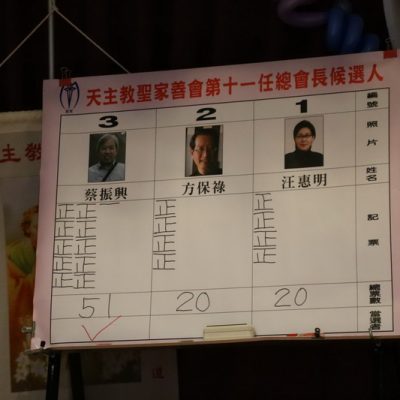 天主教聖家善會第十一任總會長候選人
3 2 1 編號
照片
蔡振興 方保祿 汪惠明 姓名
正 正 正 正 記票
正 正 正 正
正 正 正 正
正 正 正 正
正 正
51 20 20 總票數
✓ 當選者
主教
道